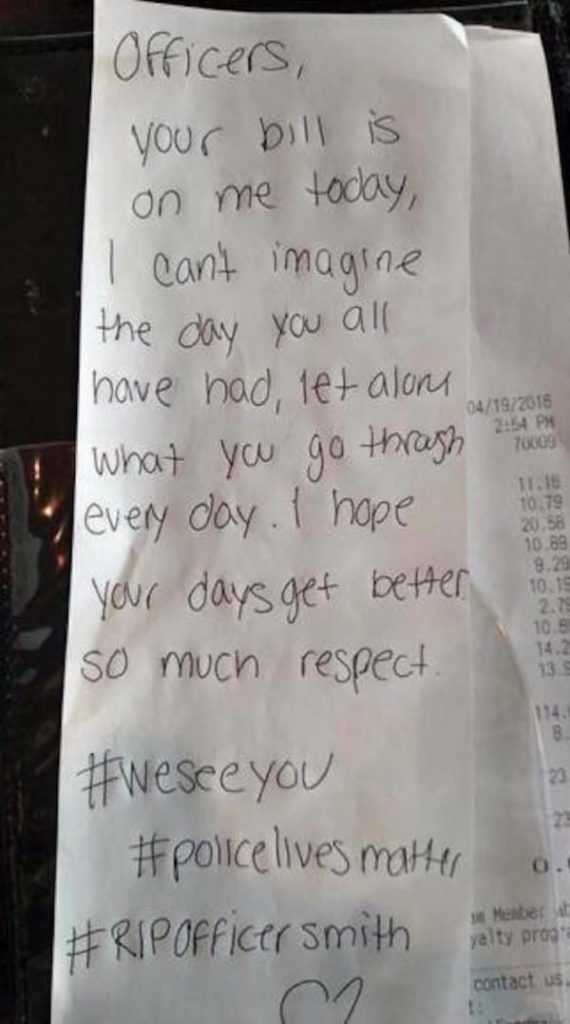 Officers,
your bill is
on me today,
I can't imagine
the day you all
have had, let alone
what you go through
every day. I hope
your days get better
so much respect.
#weseeyou
#policelivesmatter
#RIPOfficersmith
04/19/2016
2:54 PM
70009
11.16
10.79
20.58
10.89
9.29
114.
8.
23
23
0.
Member
contact us,